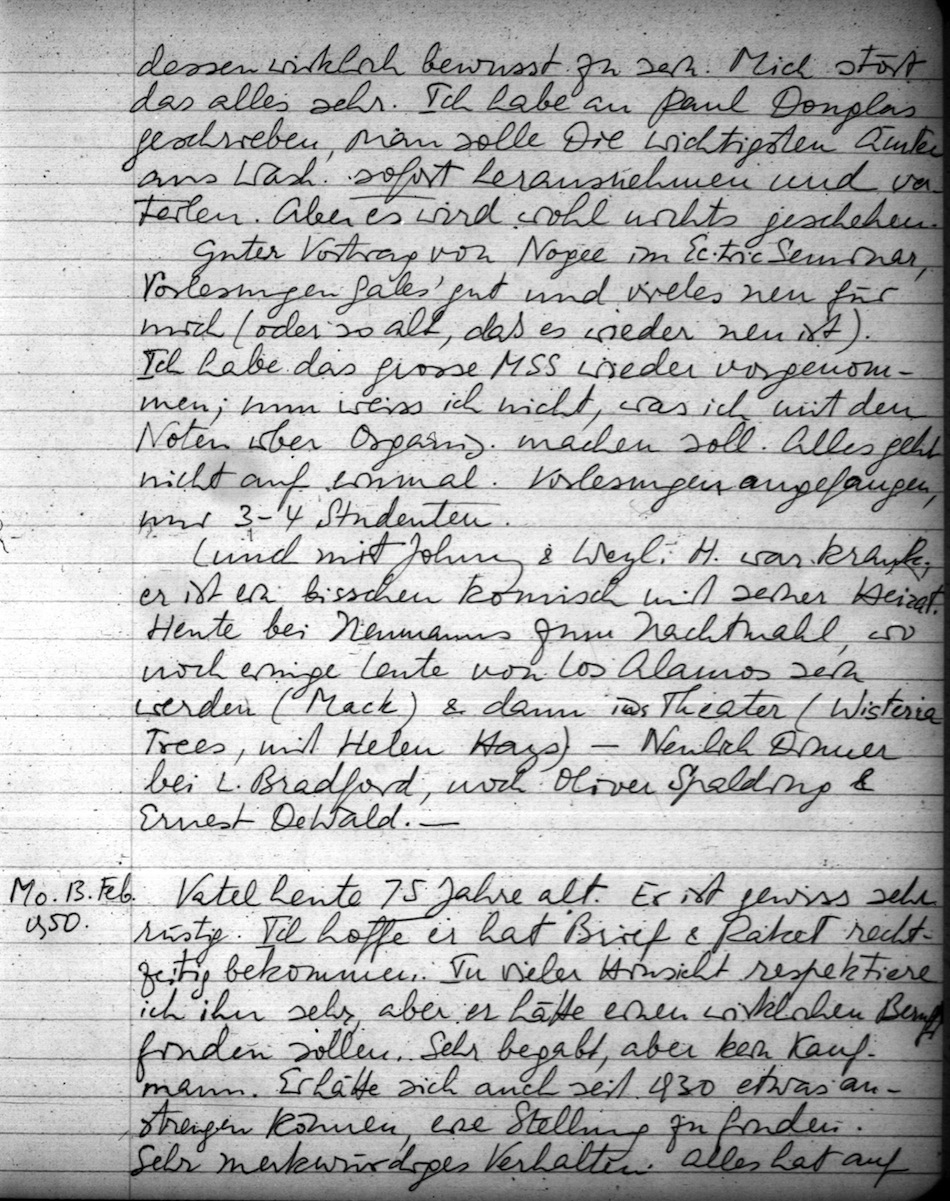 dessen wirklich bewusst zu sein. Mich stört
das alles sehr. Ich habe an Paul Douglas
geschrieben, man solle Die wichtigsten Ämter
aus Wash. sofort herausnehmen und ver-
teilen. Aber es wird wohl nichts geschehen.
Guter Vortrag von Nogee im Ec.tric Seminar,
Vorlesungen Gales' gut und vieles neu für
mich (oder so alt, das es wieder neu ist).
Ich habe das grosse MSS wieder vorgenom-
men; nun weiss ich nicht, was ich mit den
Noten über Organis. machen soll. Alles geht
nicht auf einmal. Vorlesungen angefangen,
nur 3-4 Studenten.
Lunch mit Johnny & Weyl. H. war krank,
er ist ein bisschen komisch mit seiner Heirat.
Heute bei Neumanns zum Nachtmahl, wo
noch einige Leute von Los Alamos sein
werden (Mack) & dann ins Theater (Wisteria
Trees, mit Helen Hays) — Neulich Dinner
bei L. Bradford, noch Oliver Spalding &
Ernest DeWald. —
Mo. 13. Feb. Vatel heute 75 Jahre alt. Er ist gewiss sehr
1950. rüstig. Ich hoffe er hat Brief & Paket recht-
zeitig bekommen. In vieler Hinsicht respektiere
ich ihn sehr, aber er hätte einen wirklichen Beruf
finden sollen. Sehr begabt, aber kein Kauf-
mann. Er hätte sich auch seit 1930 etwas an-
strengen können, eine Stellung zu finden.
Sehr merkwürdiges Verhalten. Alles hat auf